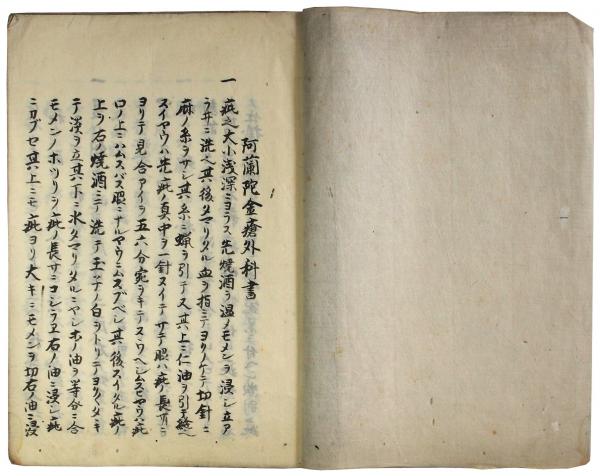 阿蘭陀金瘡外科書
一 疵之大小浅深ニヨラス先焼酒ヲ温メモメンヲ浸シ立ア
ラサニ洗又其後タマリタル血ヲ指ニテヨリノケテ切針ニ
麻ノ糸ヲサシ其糸ニ蝋ヲ引テス其上ニ仁油ヲ引テ縫
スイヤウハ先疵ノ真中ヲ一針スイテサテ眼ハ疵ノ長サニ
ヨリテ見合アイヲ五六分宛ヲキテスウヘシムスヒヤウハ疵
口ノ上ニハムスバス眼ニナルヤウニムスブベシ其後スイタル疵ノ
上ヲ右ノ焼酒ニテ洗テ玉子ノ白ヲトリテヨクタヽキ
テ淡ヲ立其下ニ水タマリタルニヤシホノ油ヲ等分ニ合
モメンノホツリヲ疵ノ長サニコシラヱ右ノ油ニ浸シ疵
ニカブセ其上ニモ疵ヨリ大キニモメンヲ切右ノ油ニ浸